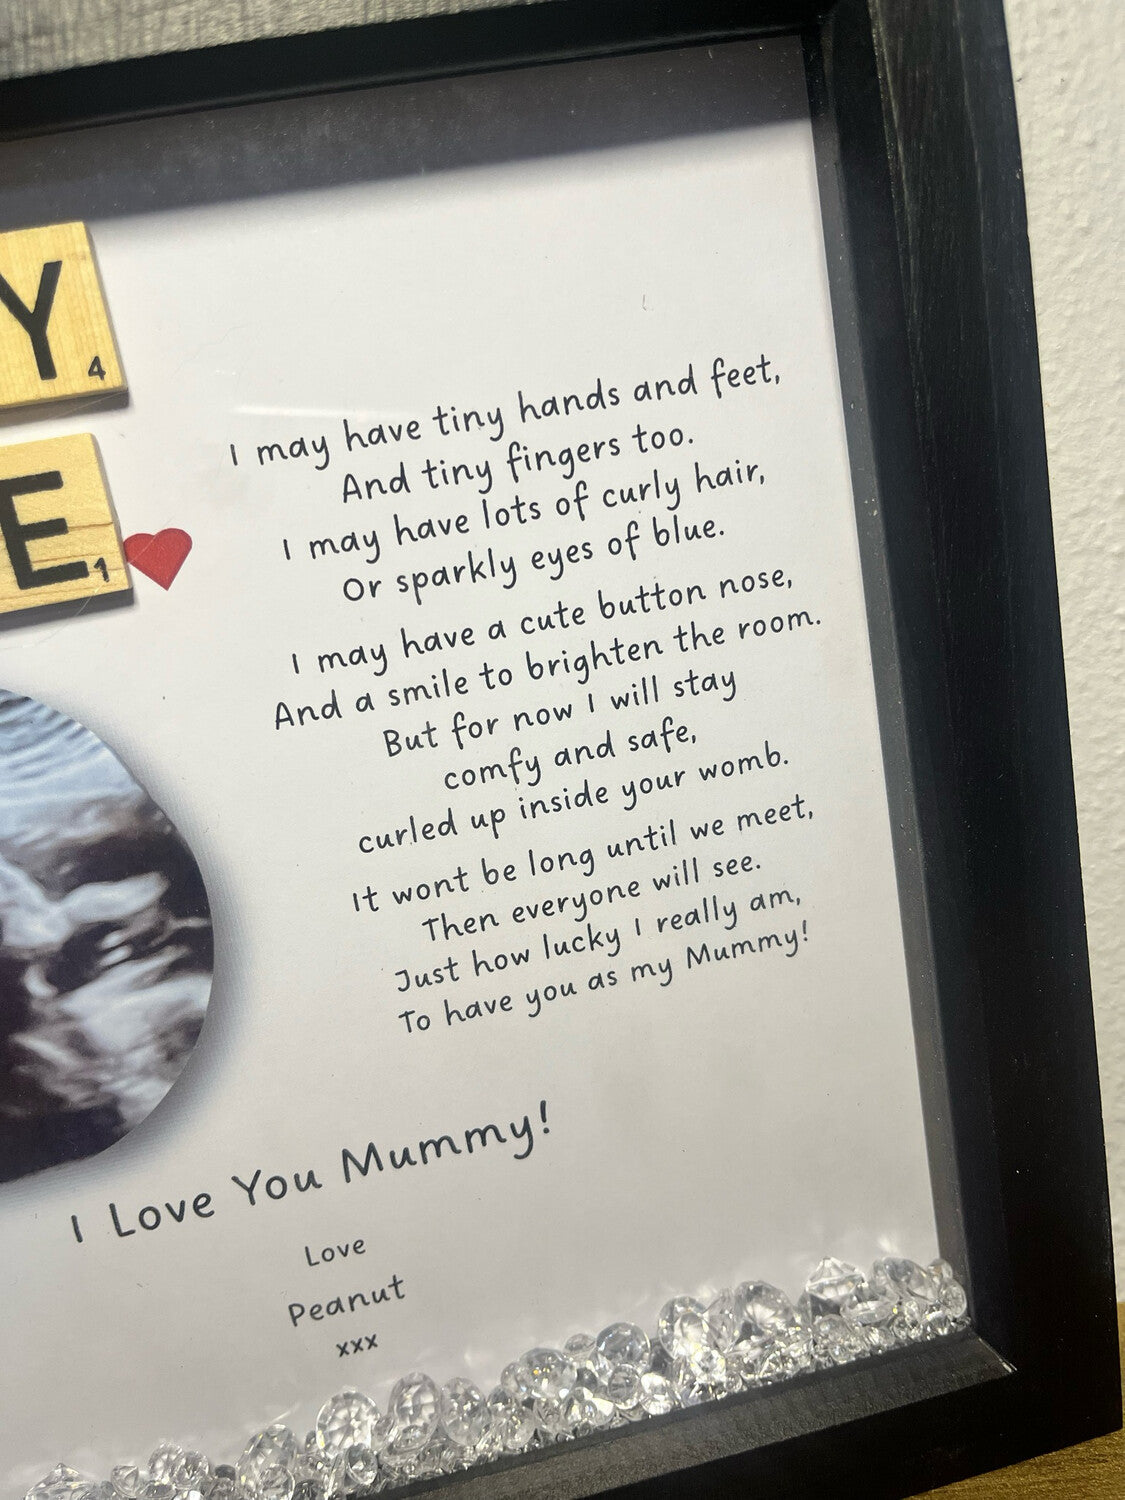 Y
4
E
1
I may have tiny hands and feet,
And tiny fingers too.
I may have lots of curly hair,
Or sparkly eyes of blue.
I may have a cute button nose,
And a smile to brighten the room.
But for now I will stay
comfy and safe,
curled up inside your womb.
It wont be long until we meet,
Then everyone will see.
Just how lucky I really am,
To have you as my Mummy!
I Love You Mummy!
Love
Peanut
xxx